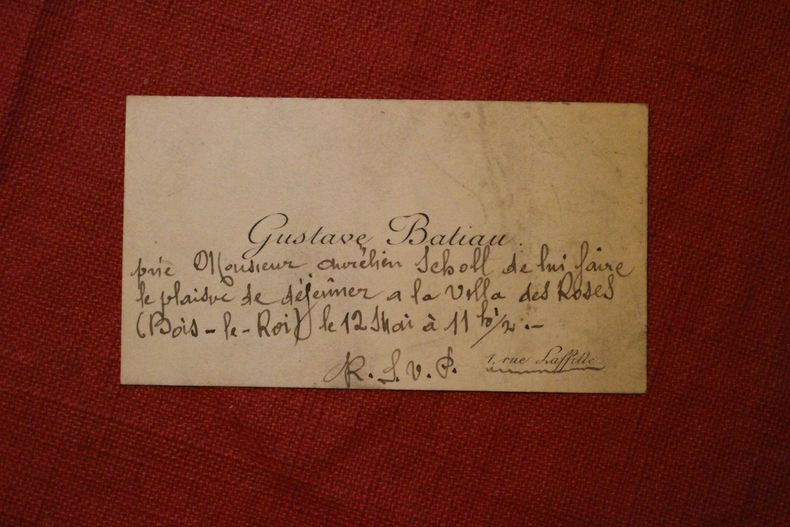 Gustave Batiau.
prie Monsieur Aurélien Scholl de lui faire
le plaisir de déjeûner a la Villa des Roses
(Bois-le-Roi) le 12 Mai à 11 h 1/2.-
R.S.V.P.
1, rue Laffitte.